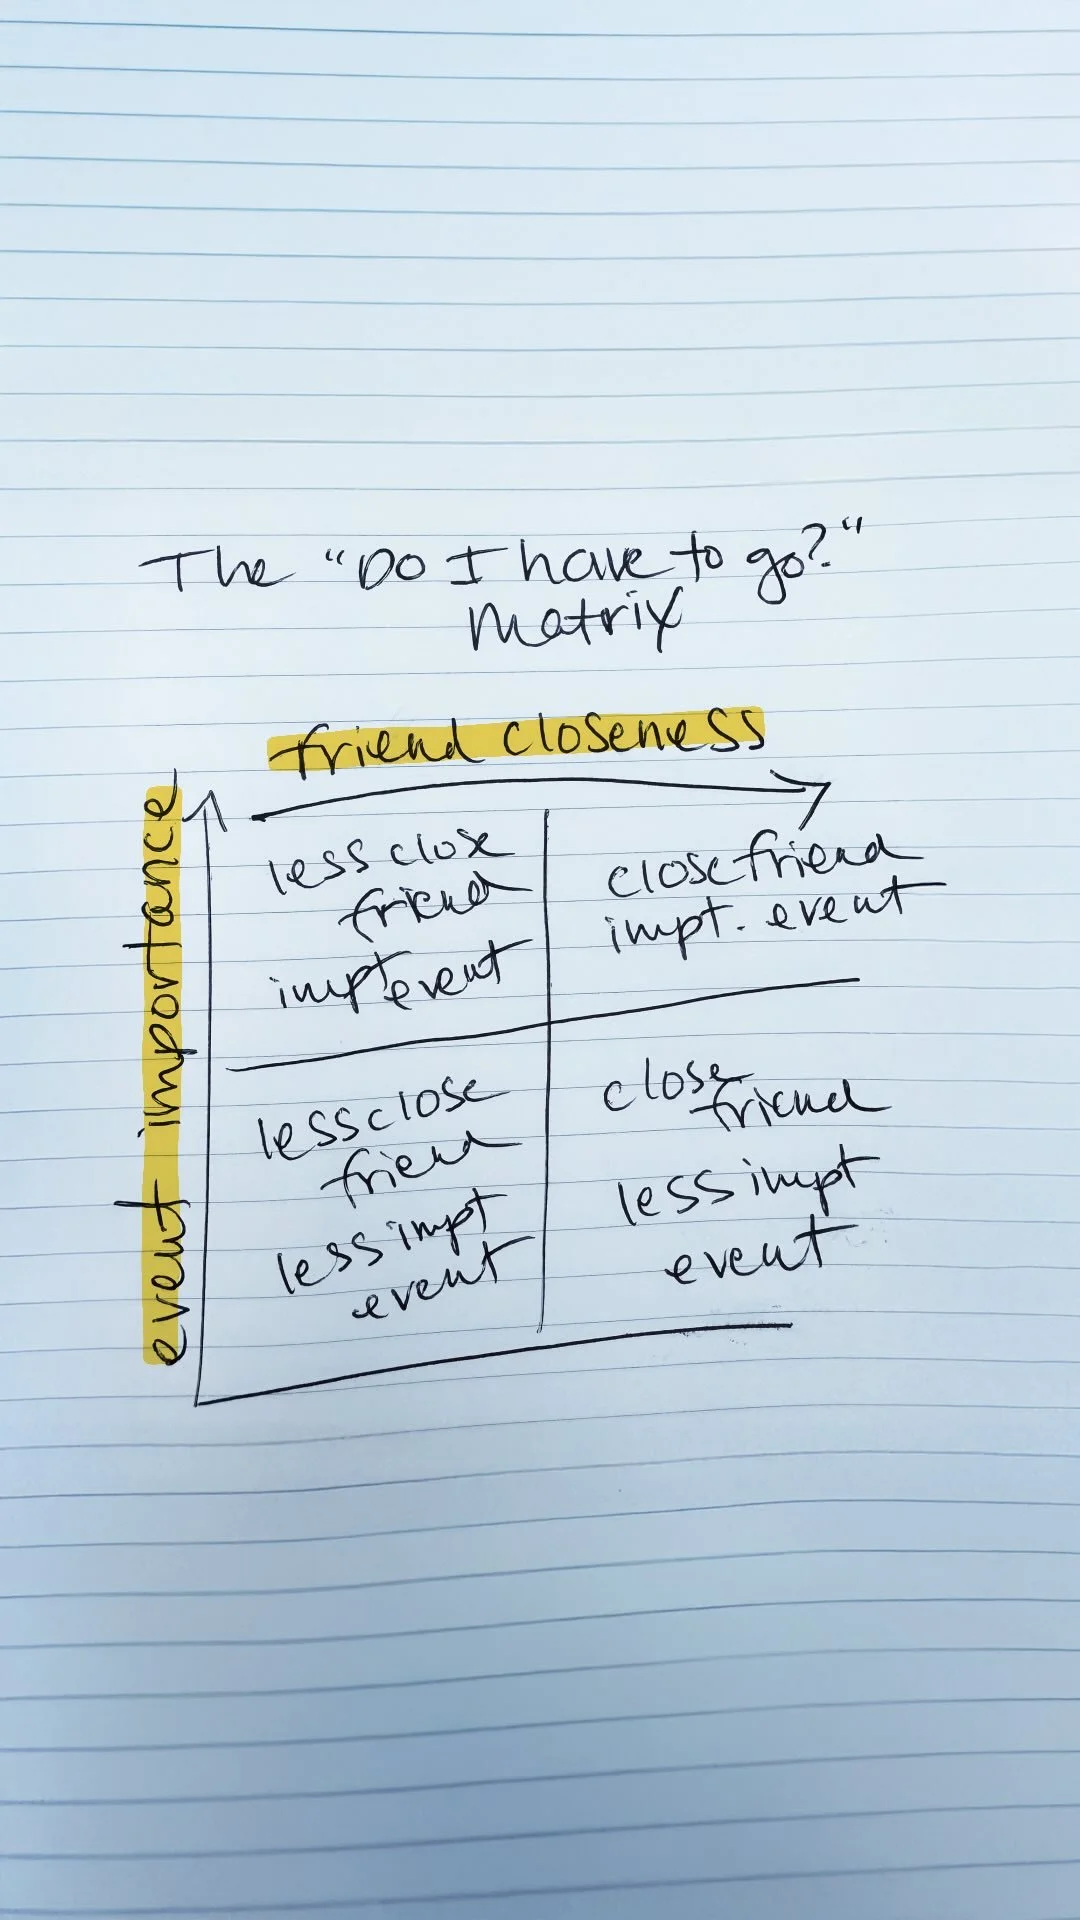 The "Do I have to go?"
Matrix
friend closeness
event importance
less close
friend
impt event
close friend
impt. event
less close
friend
less impt
event
close
friend
less impt
event